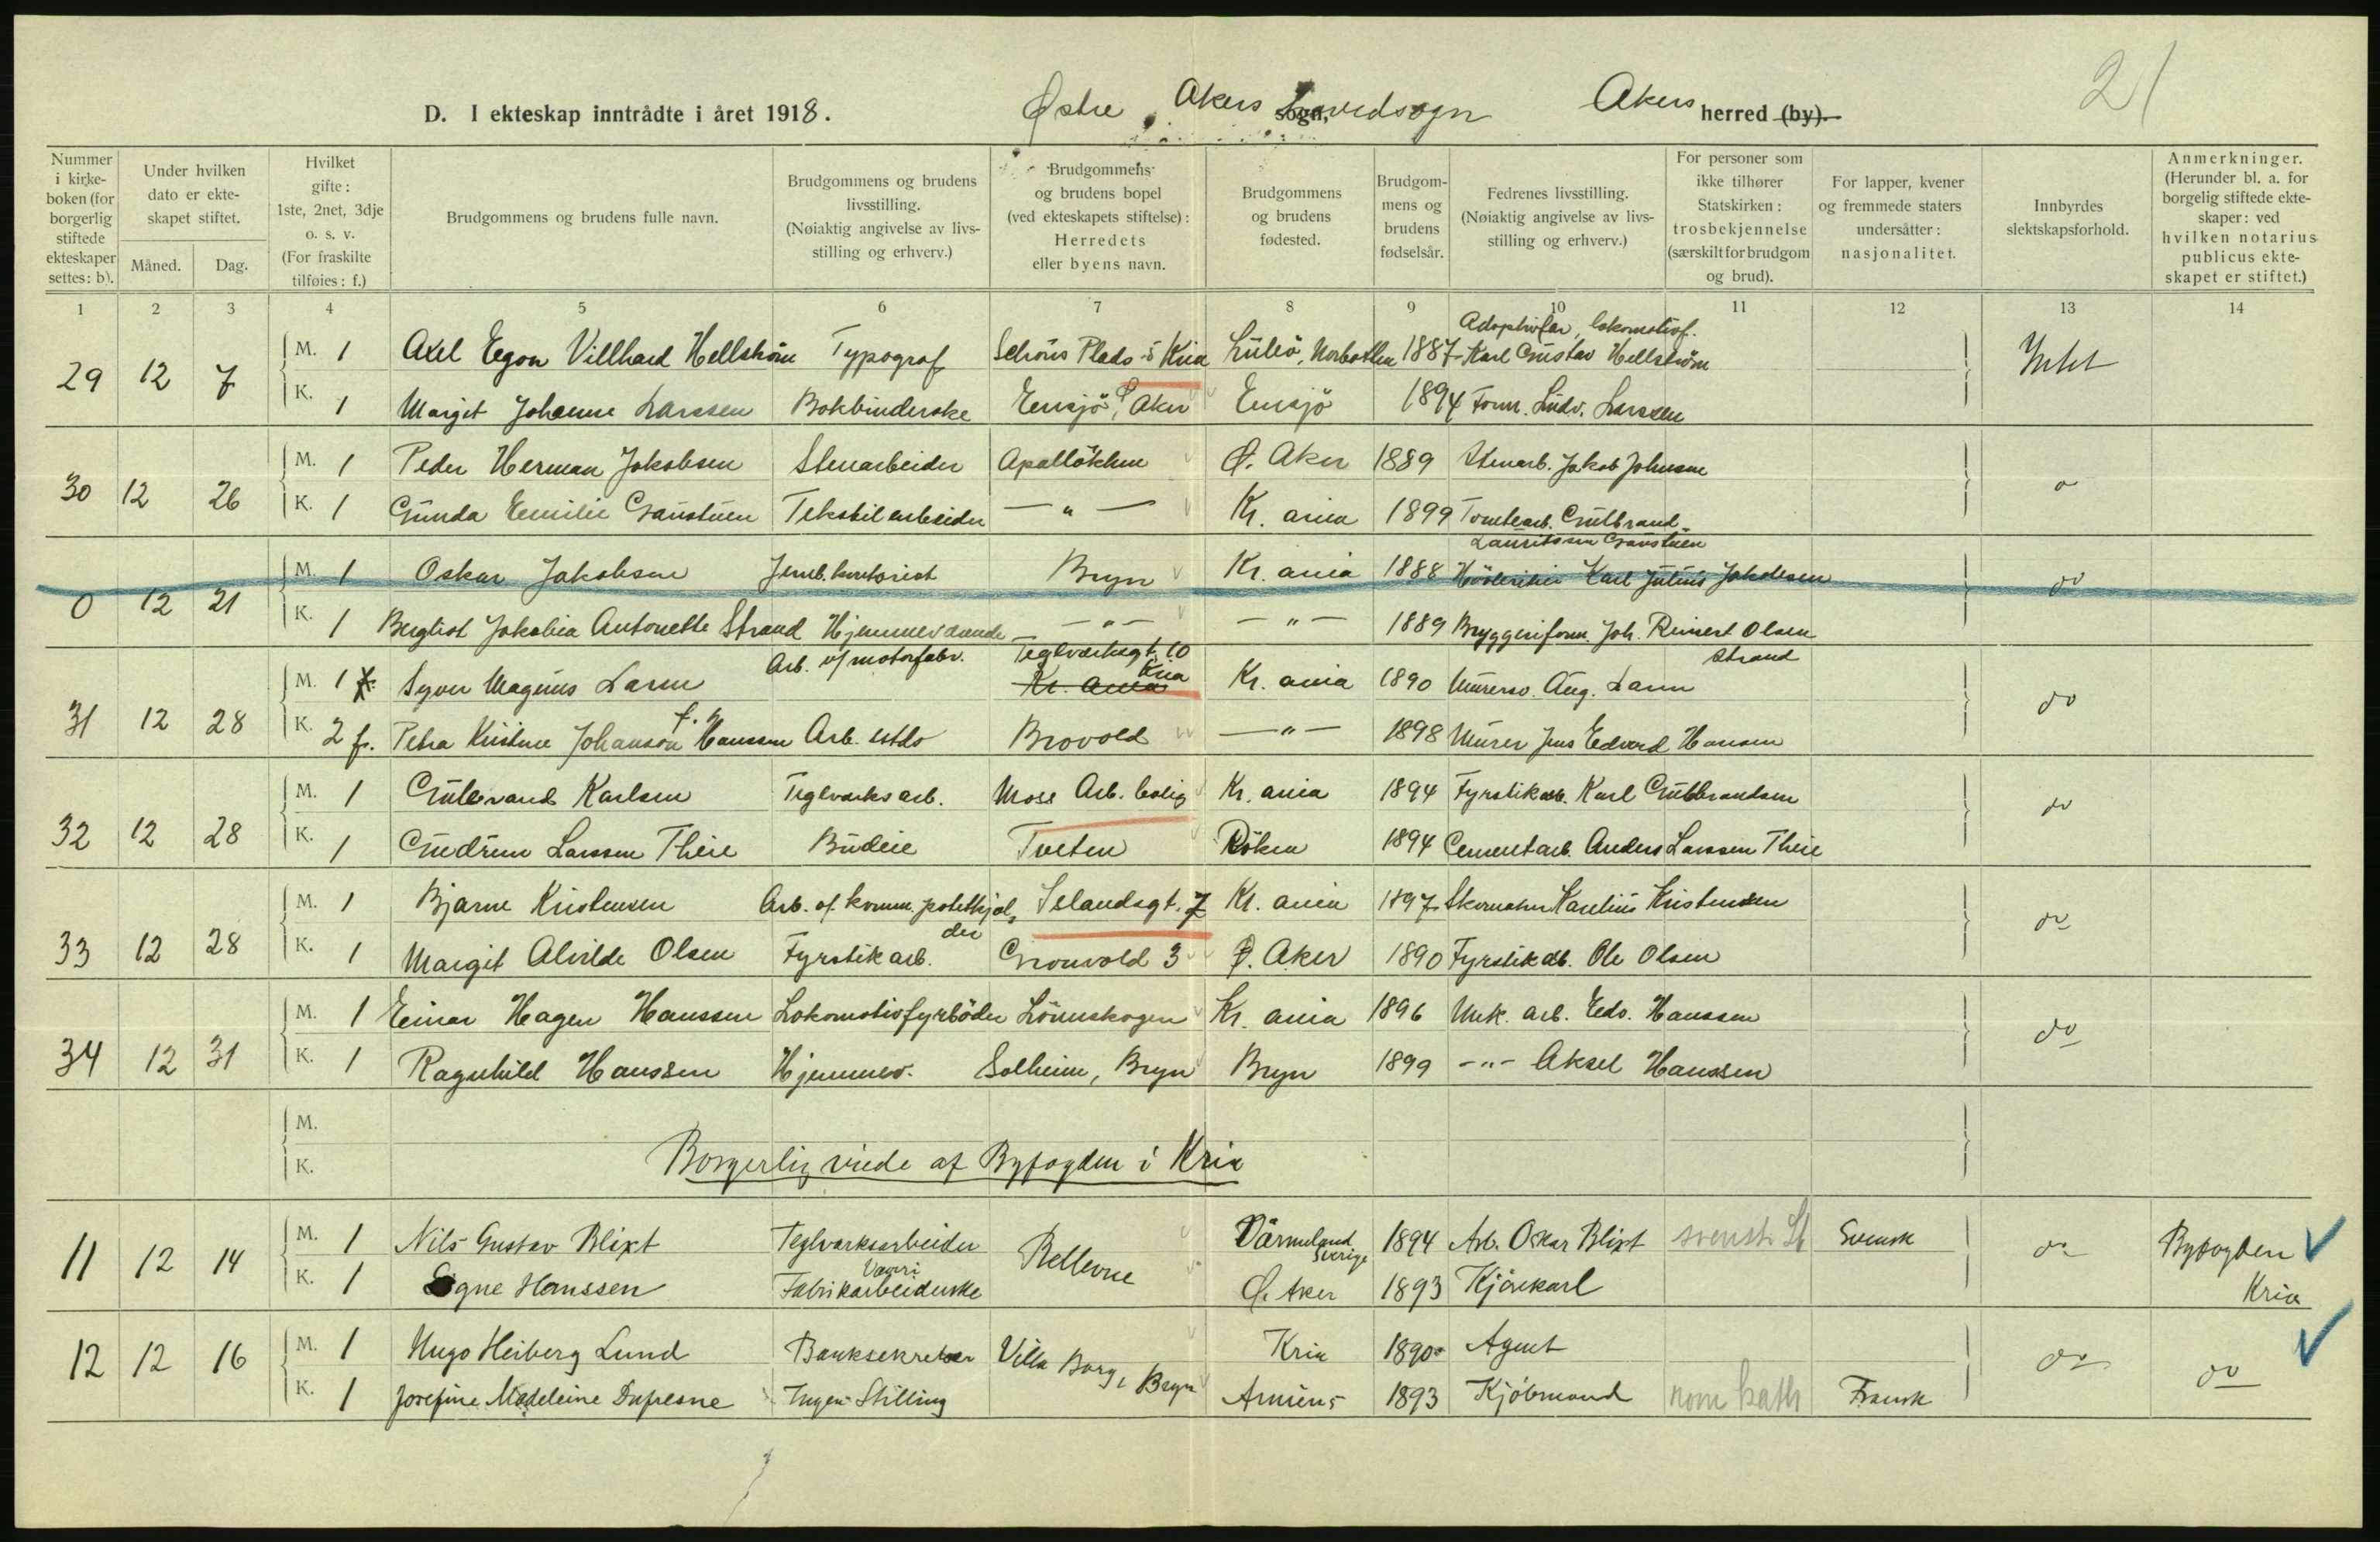 21
D. I ekteskap inntrådte i året 1918. Østre Akers hovedsogn sogn, Akers herred (by).
Nummer i kirke-boken (for borgerlig stiftede ekteskaper settes: b).
Under hvilken dato er ekte-skapet stiftet.
Måned. Dag.
Hvilket gifte: 1ste, 2net, 3dje o. s. v. (For fraskilte tilføies: f.)
Brudgommens og brudens fulle navn.
Brudgommens og brudens livsstilling. (Nøiaktig angivelse av livs-stilling og erhverv.)
Brudgommens og brudens bopel (ved ekteskapets stiftelse): Herredets eller byens navn.
Brudgommens og brudens fødested.
Brudgom-mens og brudens fødselsår.
Fedrenes livsstilling. (Nøiaktig angivelse av livs-stilling og erhverv.)
For personer som ikke tilhører Statskirken: trosbekjennelse (særskilt for brudgom og brud).
For lapper, kvener og fremmede staters undersåtter: nasjonalitet.
Innbyrdes slektskapsforhold.
Anmerkninger. (Herunder bl. a. for borgelig stiftede ekte-skaper: ved hvilken notarius publicus ekte-skapet er stiftet.)
1 2 3 4 5 6 7 8 9 10 11 12 13 14
Adoptivfar, lokomotivf.
M. 1 Axel Egon Villhard Hellström Typograf Schous Plads 5 Kria Luleå, Norbotten 1887 Karl Gustav Hellström
29 12 7 Intet
K. 1 Margit Johanne Larssen Bokbinderske Ensjö, Ø Aker Ensjö 1894 Form. Ludv. Larssen
M. 1 Peder Herman Jakobsen Stenarbeider Apallökken Ø. Aker 1889 Stenarb. Jakob Johnsen
30 12 26
K. 1 Gunda Emilie Gaustuen Tekstilarbeider — " — Kr. ania 1899 Tomtearb. Gulbrand
Lauritssen Gaustuen
M. 1 Oskar Jakobsen Jernb. kontorist Bryn Kr. ania 1888 Karl Julius Jakobsen
0 12 21 do
K. 1 Bergliot Jakobia Antonette Strand Hjemmeværende — " — — " — 1889 Bryggeriform. Joh. Reinert Olsen
Strand
Arb. v/ motorfabr. Teglverksgt. 10
Kria
M. 1 f. Syver Magnus Larm Kr. ania Kr. ania 1890 Murersv. Aug. Larm
31 12 28 do
K. 2 f. Petra Kristine Johanson f. Hanssen Arb. estds Brovold — " — 1898 Murer Jens Edvard Hansen
M. 1 Gulbrand Karlsen Teglverksarb. Moss Arb. bolig Kr. ania 1894 Fyrstikarb. Karl Gulbrandsen
32 12 28 do
K. 1 Gudrun Larssen Theie Budeie Tveten Röken 1894 Cementarb. Anders Larssen Theie
M. 1 Bjarne Kristensen Arb. of. komm. potetkjel- Selandsgt. 7 Kr. ania 1897 Skomaker Karelius Kristensen
der
33 12 28 do
K. 1 Margit Alvilde Olsen Fyrstikarb. Grönvold 3 Ø. Aker 1890 Fyrstikarb. Ole Olsen
M. 1 Einar Hagen Hanssen Lokomotivfyrböder Lönnskogen Kr. ania 1896 Mek. arb. Edv. Hanssen
34 12 31 do
K. 1 Ragnhild Hanssen Hjemmev. Solheim, Bryn Bryn 1899 — " — Aksel Hanssen
M.
K. Borgerlig viede af Byfogden i Kria
M. 1 Nils Gustav Blixt Teglverksarbeider Värmeland Sverige 1894 Arb. Oskar Blixt svensk St Svensk
11 12 14 Bellevue do Byfogden
K. 1 Signe Hanssen Fabrikarbeiderske Ø. Aker 1893 Kjörekarl Kria
M. 1 Hugo Heiberg Lund Banksekretær Villa Borg, Bryn Kria 1890 Agent
12 12 16 do do
K. 1 Josefine Madeleine Dufresne Ingen Stilling Amiens 1893 Kjöbmand rom kath Fransk